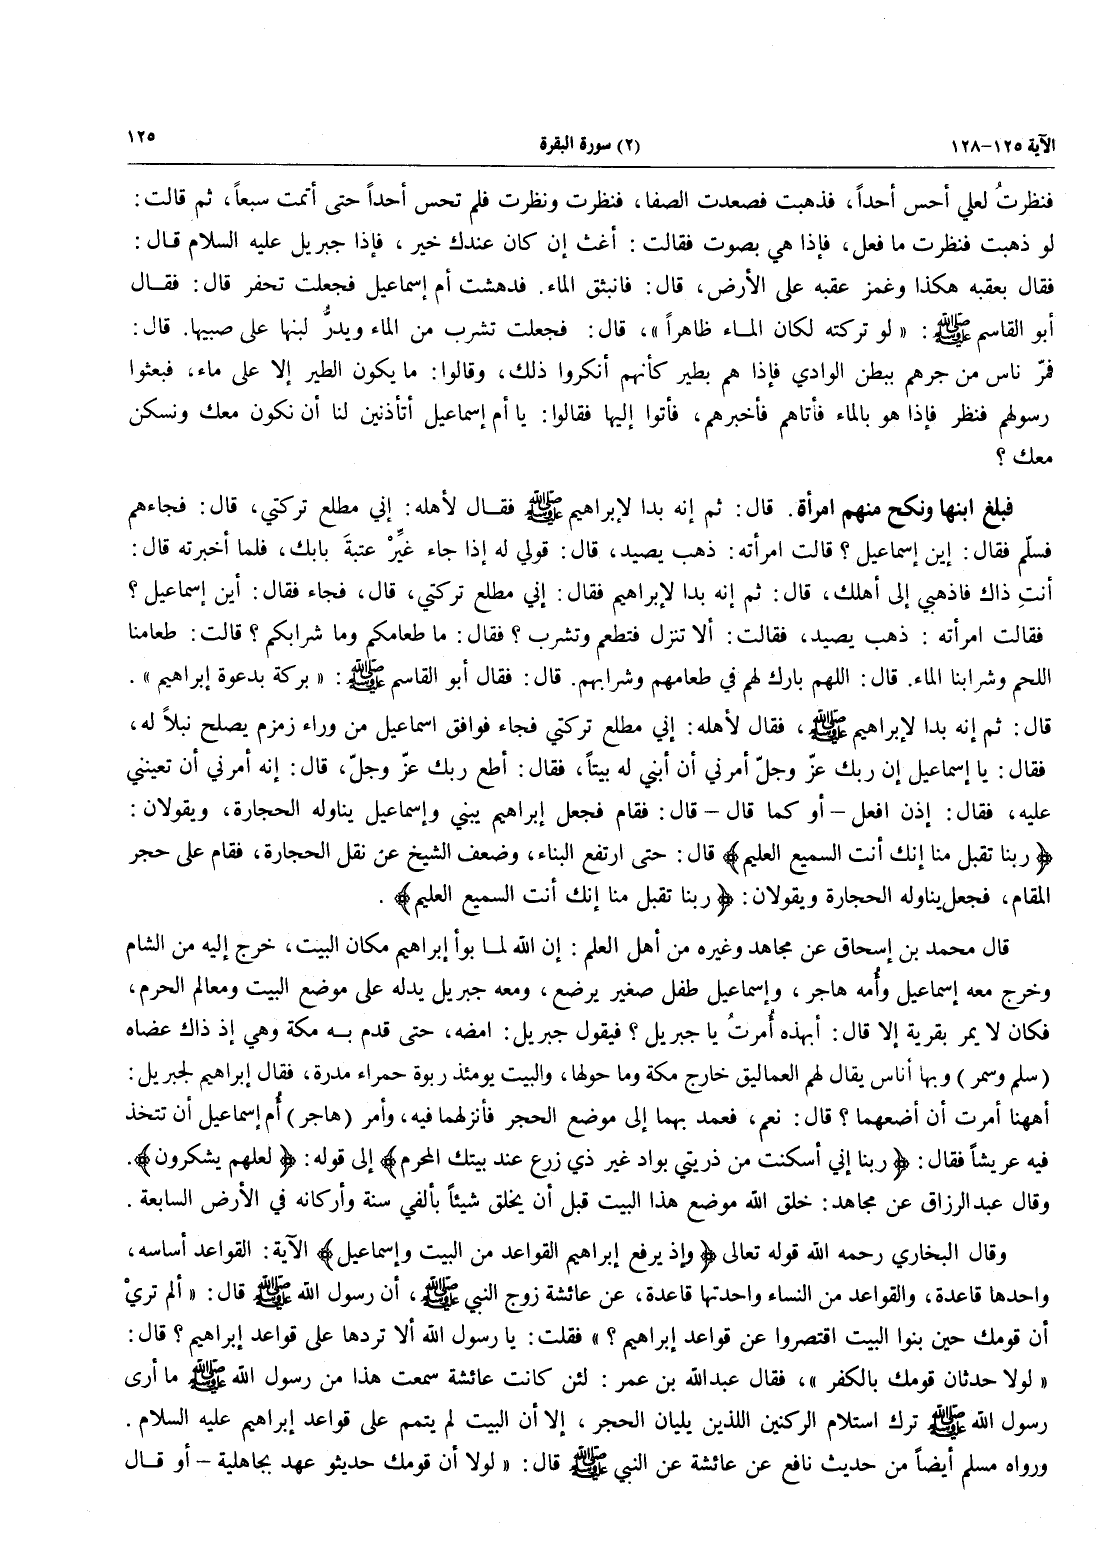 الآية ١٢٥-١٢٨
(٢) سورة البقرة
١٢٥
فنظرتُ لعلي أحس أحداً، فذهبت فصعدت الصفا، فنظرت ونظرت فلم تحس أحداً حتى أتمت سبعاً، ثم قالت :
لو ذهبت فنظرت ما فعل، فإذا هي بصوت فقالت : أغث إن كان عندك خير ، فإذا جبريل عليه السلام قال :
فقال بعقبه هكذا وغمز عقبه على الأرض، قال: فانبثق الماء. فدهشت أم إسماعيل فجعلت تحفر قال: فقال
أبو القاسم ﷺ : « لو تركته لكان الماء ظاهراً »، قال: فجعلت تشرب من الماء ويدرُّ لبنها على صبيها. قال:
فمرّ ناس من جرهم ببطن الوادي فإذا هم بطير كأنهم أنكروا ذلك، وقالوا: ما يكون الطير إلا على ماء، فبعثوا
رسولهم فنظر فإذا هو بالماء فأتاهم فأخبرهم، فأتوا إليها فقالوا: يا أم إسماعيل أتأذنين لنا أن نكون معك ونسكن
معك ؟
فبلغ ابنها ونكح منهم امرأة. قال: ثم إنه بدا لإبراهيم ﷺ فقال لأهله: إني مطلع تركتي، قال: فجاءهم
فسلّم فقال: إين إسماعيل ؟ قالت امرأته: ذهب يصيد، قال: قولي له إذا جاء غيِّرْ عتبةَ بابك، فلما أخبرته قال:
أنتِ ذاك فاذهبي إلى أهلك، قال: ثم إنه بدا لإبراهيم فقال: إني مطلع تركتي، قال، فجاء فقال: أين إسماعيل ؟
فقالت امرأته : ذهب يصيد، فقالت: ألا تنزل فتطعم وتشرب ؟ فقال: ما طعامكم وما شرابكم ؟ قالت: طعامنا
اللحم وشرابنا الماء. قال: اللهم بارك لهم في طعامهم وشرابهم. قال: فقال أبو القاسم ﷺ : « بركة بدعوة إبراهيم » .
قال: ثم إنه بدا لإبراهيم ﷺ ، فقال لأهله: إني مطلع تركتي فجاء فوافق اسماعيل من وراء زمزم يصلح نبلاً له،
فقال: يا إسماعيل إن ربك عزّ وجلّ أمرني أن أبني له بيتاً، فقال: أطع ربك عزّ وجلّ، قال: إنه أمرني أن تعينني
عليه، فقال: إذن افعل – أو كما قال – قال: فقام فجعل إبراهيم يبني وإسماعيل يناوله الحجارة، ويقولان:
﴿ ربنا تقبل منا إنك أنت السميع العليم﴾ قال: حتى ارتفع البناء، وضعف الشيخ عن نقل الحجارة، فقام على حجر
المقام، فجعل يناوله الحجارة ويقولان: ﴿ ربنا تقبل منا إنك أنت السميع العليم﴾ .
قال محمد بن إسحاق عن مجاهد وغيره من أهل العلم : إن الله لما بوأ إبراهيم مكان البيت، خرج إليه من الشام
وخرج معه إسماعيل وأُمه هاجر ، وإسماعيل طفل صغير يرضع، ومعه جبريل يدله على موضع البيت ومعالم الحرم،
فكان لا يمر بقرية إلا قال: أبهذه أُمرتُ يا جبريل ؟ فيقول جبريل: امضه، حتى قدم به مكة وهي إذ ذاك عضاه
(سلم وسمر ) وبها أناس يقال لهم العماليق خارج مكة وما حولها، والبيت يومئذ ربوة حمراء مدرة، فقال إبراهيم لجبريل:
أههنا أمرت أن أضعهما ؟ قال: نعم، فعمد بهما إلى موضع الحجر فأنزلهما فيه، وأمر (هاجر ) أُم إسماعيل أن تتخذ
فيه عريشاً فقال: ﴿ ربنا إني أسكنت من ذريتي بواد غير ذي زرع عند بيتك المحرم﴾ إلى قوله: ﴿ لعلهم يشكرون﴾.
وقال عبدالرزاق عن مجاهد: خلق الله موضع هذا البيت قبل أن يخلق شيئاً بألفي سنة وأركانه في الأرض السابعة .
وقال البخاري رحمه الله قوله تعالى ﴿ وإذ يرفع إبراهيم القواعد من البيت وإسماعيل﴾ الآية: القواعد أساسه،
واحدها قاعدة، والقواعد من النساء واحدتها قاعدة، عن عائشة زوج النبي ﷺ ، أن رسول الله ﷺ قال: « ألم تريْ
أن قومك حين بنوا البيت اقتصروا عن قواعد إبراهيم ؟ » فقلت: يا رسول الله ألا تردها على قواعد إبراهيم ؟ قال:
« لولا حدثان قومك بالكفر »، فقال عبدالله بن عمر : لئن كانت عائشة سمعت هذا من رسول الله ﷺ ما أرى
رسول الله ﷺ ترك استلام الركنين اللذين يليان الحجر ، إلا أن البيت لم يتمم على قواعد إبراهيم عليه السلام .
ورواه مسلم أيضاً من حديث نافع عن عائشة عن النبي ﷺ قال: « لولا أن قومك حديثو عهد بجاهلية – أو قال